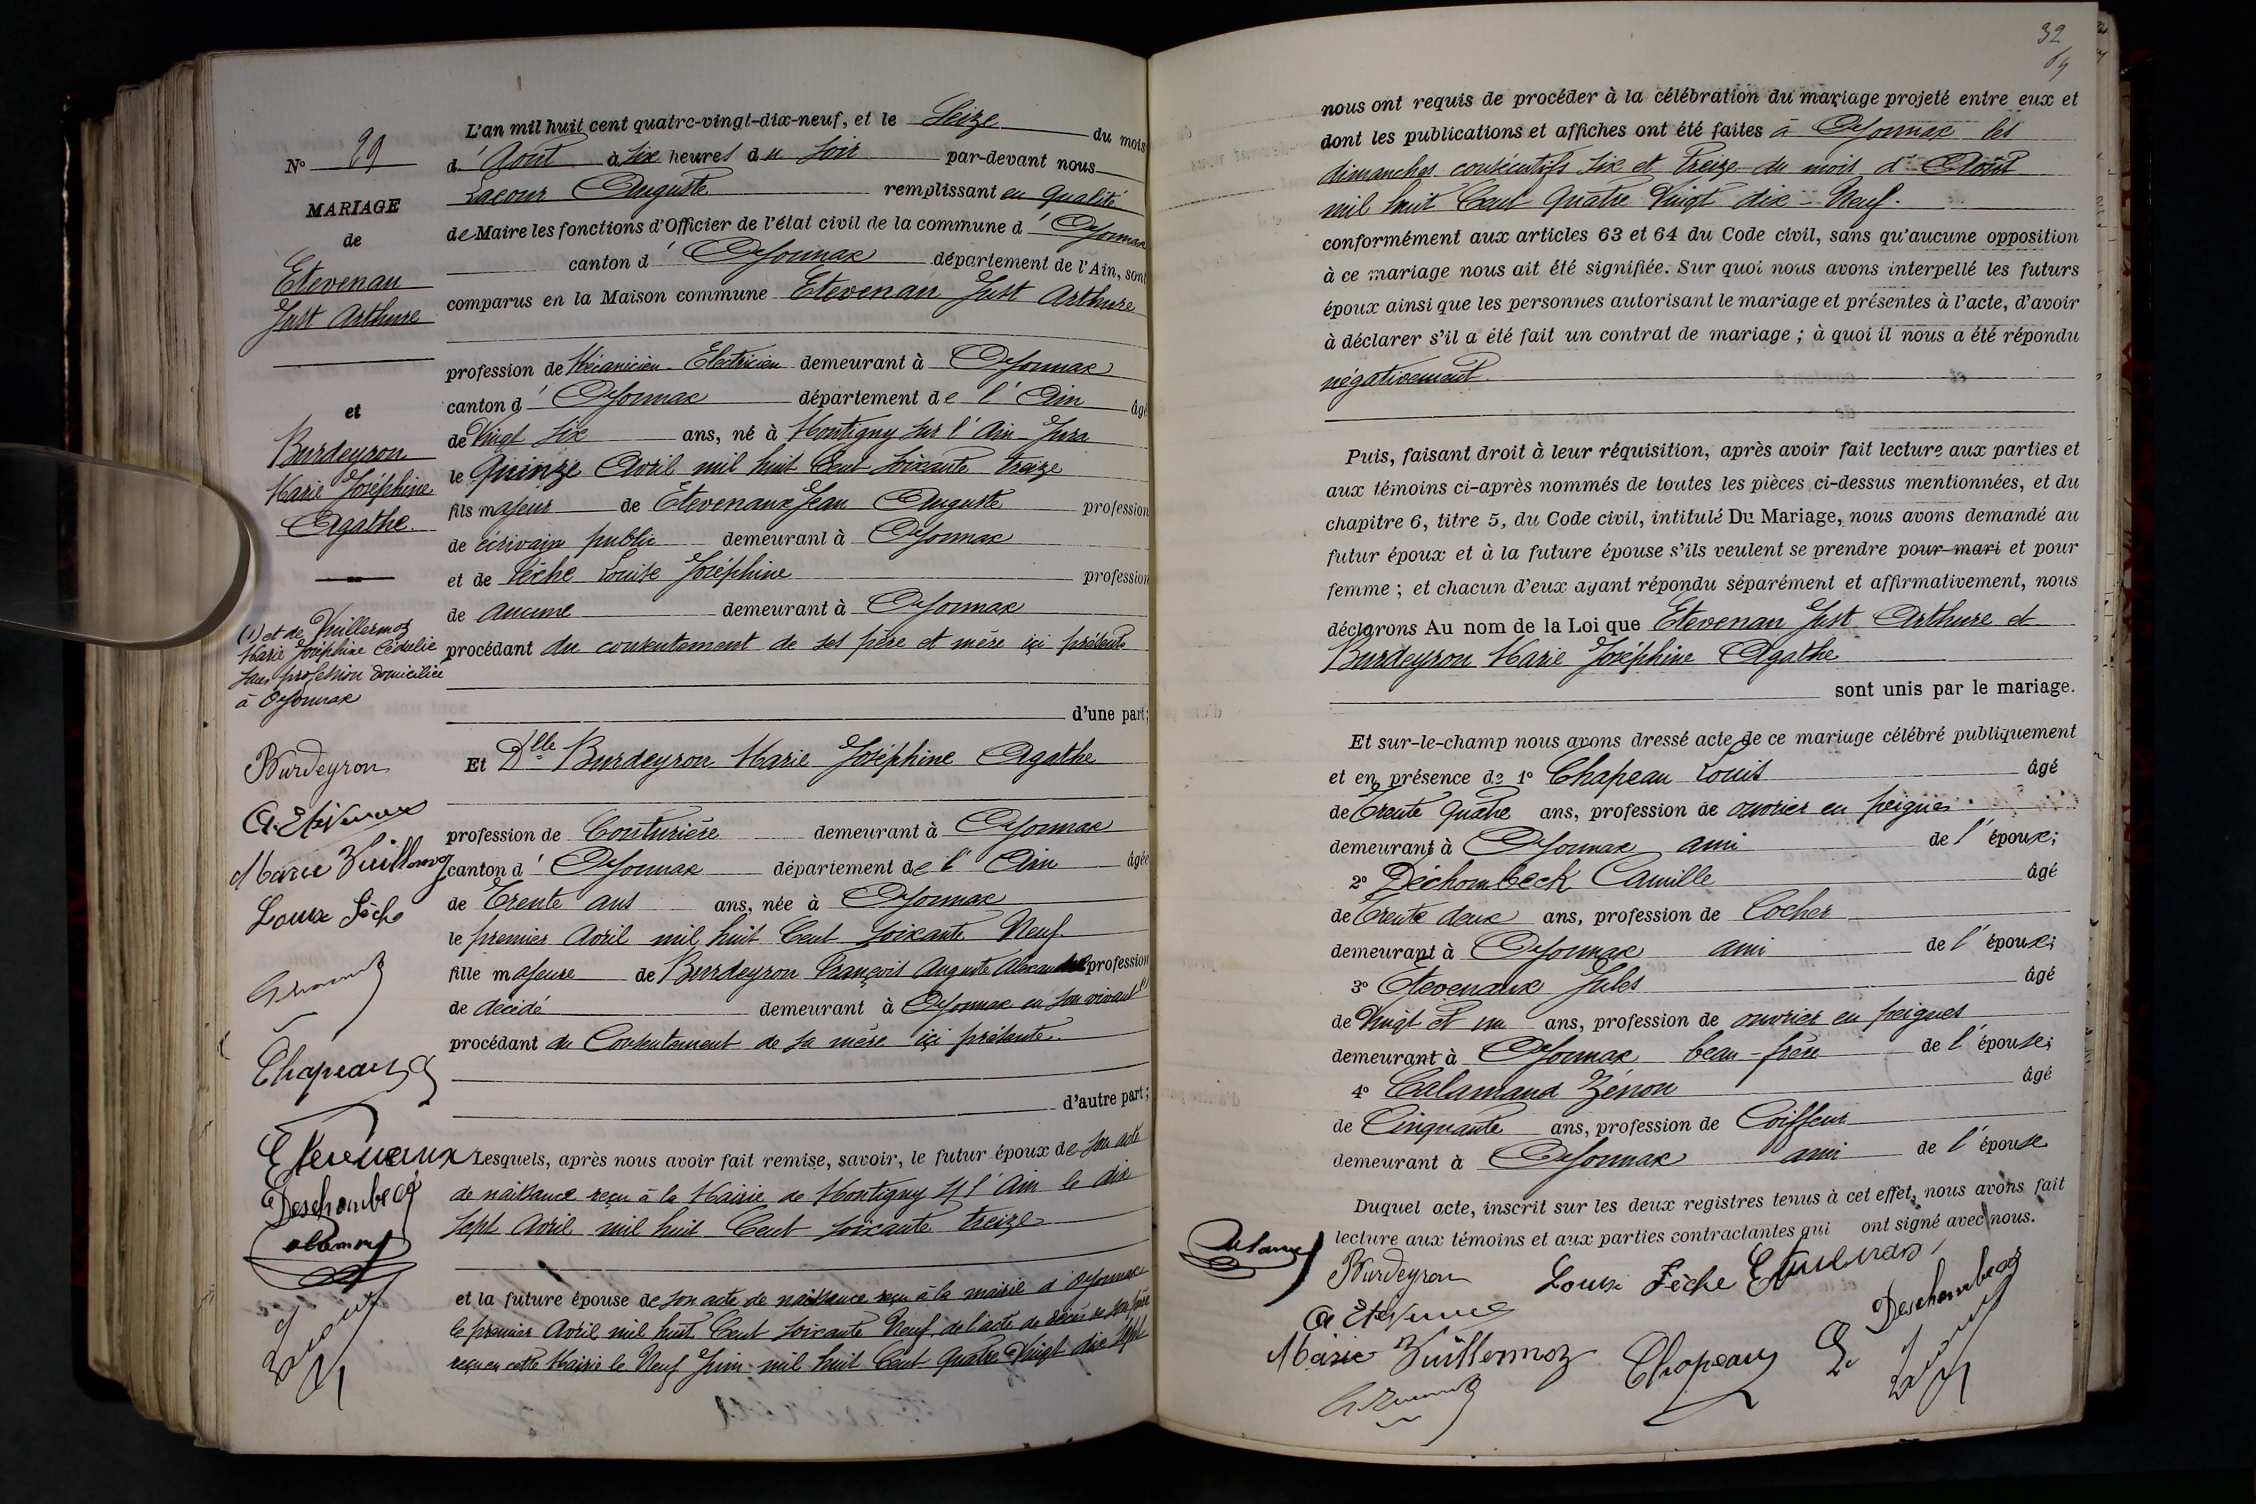 N° 29
MARIAGE
de
Etevenau
Just Arthure
et
Burdeyron
Marie Joséphine
Agathe
(1) et de Vuillermoz
Marie Joséphine Cédulie
sans profession domiciliée
à Oyonnax
Burdeyron
A. Etevenaux
Marie Vuillermoz
Louise Pêche
Chapeau
Etevenaux
Deschombeck
L'an mil huit cent quatre-vingt-dix-neuf, et le Seize du mois
d'Aout à six heures du soir par-devant nous
Lacour Auguste remplissant en qualité
de Maire les fonctions d'Officier de l'état civil de la commune d'Oyonnax
canton d'Oyonnax département de l'Ain, sont
comparus en la Maison commune Etevenau Just Arthure
profession de Mécanicien-Electricien demeurant à Oyonnax
canton d'Oyonnax département de l'Ain âgé
de Vingt six ans, né à Montigny sur l'Ain-Jura
le Quinze Avril mil huit Cent soixante treize
fils majeur de Etevenaux Jean Auguste profession
de écrivain public demeurant à Oyonnax
et de Pêche Louise Joséphine profession
de aucune demeurant à Oyonnax
procédant du consentement de ses père et mère içi présents
d'une part;
Et Dlle Burdeyron Marie Joséphine Agathe
profession de Couturière demeurant à Oyonnax
canton d'Oyonnax département de l'Ain âgée
de Trente ans ans, née à Oyonnax
le premier Avril mil huit Cent soixante Neuf
fille majeure de Burdeyron François Auguste profession
de décédé demeurant à Oyonnax en son vivant (1)
procédant du Consentement de sa mère içi présente.
d'autre part;
Lesquels, après nous avoir fait remise, savoir, le futur époux de son acte
de naissance reçu à la Mairie de Montigny s/ l'Ain le dix
sept Avril mil huit Cent soixante treize
et la future épouse de son acte de naissance reçu à la mairie d'Oyonnax
le premier Avril mil huit Cent soixante Neuf, de l'acte de décès de son père
reçu en cette Mairie le Neuf Juin mil huit Cent quatre Vingt dix sept
32
nous ont requis de procéder à la célébration du mariage projeté entre eux et
dont les publications et affiches ont été faites à Oyonnax les
dimanches consécutifs six et treize du mois d'Août
mil huit Cent Quatre Vingt dix-Neuf.
conformément aux articles 63 et 64 du Code civil, sans qu'aucune opposition
à ce mariage nous ait été signifiée. Sur quoi nous avons interpellé les futurs
époux ainsi que les personnes autorisant le mariage et présentes à l'acte, d'avoir
à déclarer s'il a été fait un contrat de mariage; à quoi il nous a été répondu
négativement
Puis, faisant droit à leur réquisition, après avoir fait lecture aux parties et
aux témoins ci-après nommés de toutes les pièces ci-dessus mentionnées, et du
chapitre 6, titre 5, du Code civil, intitulé Du Mariage, nous avons demandé au
futur époux et à la future épouse s'ils veulent se prendre pour mari et pour
femme; et chacun d'eux ayant répondu séparément et affirmativement, nous
déclarons Au nom de la Loi que Etevenau Just Arthure et
Burdeyron Marie Joséphine Agathe
sont unis par le mariage.
Et sur-le-champ nous avons dressé acte de ce mariage célébré publiquement
et en présence de 1° Chapeau Louis âgé
de Trente Quatre ans, profession de ouvrier en peignes
demeurant à Oyonnax ami de l'époux;
2° Déchombeck Camille âgé
de Trente deux ans, profession de Cocher
demeurant à Oyonnax ami de l'époux;
3° Etevenaux Jules âgé
de Vingt et un ans, profession de ouvrier en peignes
demeurant à Oyonnax beau-frère de l'épouse;
4° Calamand Zénon âgé
de Cinquante ans, profession de Coiffeur
demeurant à Oyonnax ami de l'épouse
Duquel acte, inscrit sur les deux registres tenus à cet effet, nous avons fait
lecture aux témoins et aux parties contractantes qui ont signé avec nous.
Burdeyron Louise Pêche
A Etevenaux Deschombeck
Marie Vuillermoz Chapeau